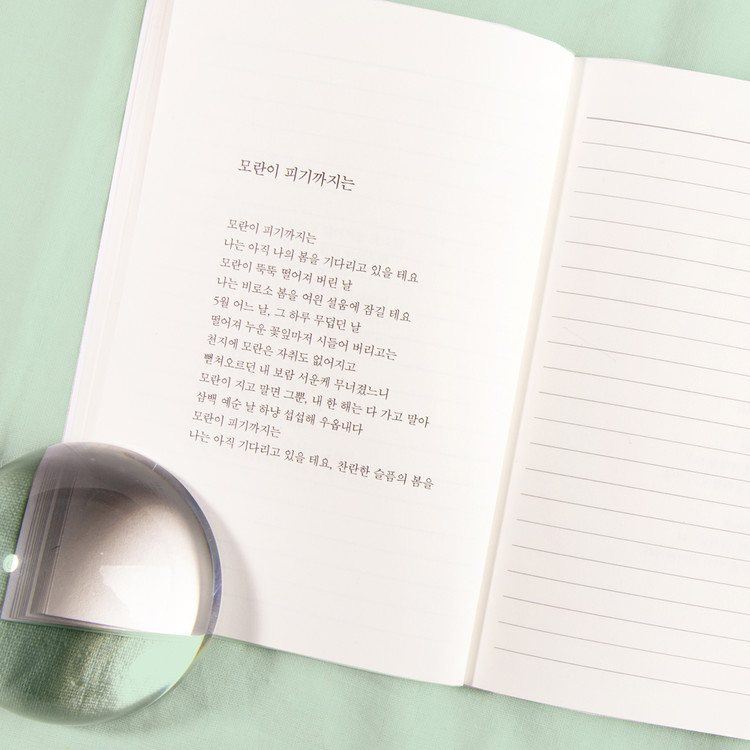 모란이 피기까지는
모란이 피기까지는
나는 아직 나의 봄을 기다리고 있을 테요
모란이 뚝뚝 떨어져 버린 날
나는 비로소 봄을 여읜 설움에 잠길 테요
5월 어느 날, 그 하루 무덥던 날
떨어져 누운 꽃잎마저 시들어 버리고는
천지에 모란은 자취도 없어지고
뻗쳐오르던 내 보람 서운케 무너졌느니
모란이 지고 말면 그뿐, 내 한 해는 다 가고 말아
삼백 예순 날 하냥 섭섭해 우옵내다
모란이 피기까지는
나는 아직 기다리고 있을 테요, 찬란한 슬픔의 봄을